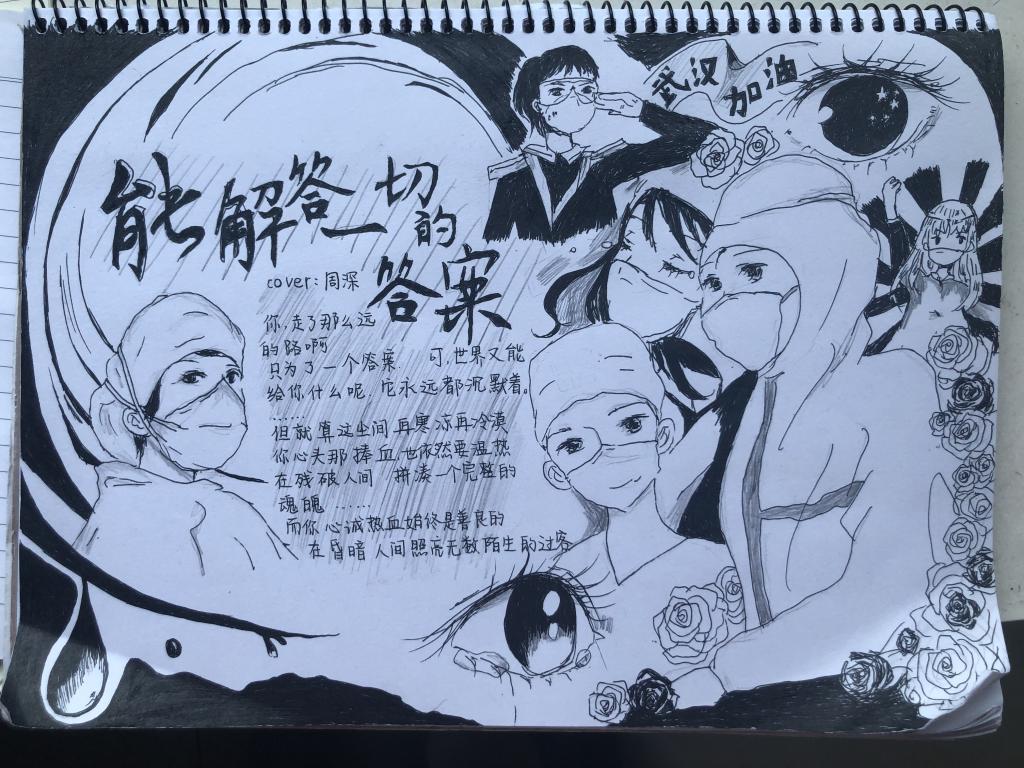 武汉
加油
能解答一切
的
答案
cover:周深
你,走了那么远
的路啊
只为了一个答案. 可,世界又能
给你什么呢,它永远都沉默着。
……
但就算这尘间再寒凉再冷漠
你心头那捧血也依然要温热
在残破人间 拼凑一个完整的
魂魄 ……
而你心诚热血始终是善良的
在昏暗人间照亮无数陌生的过客